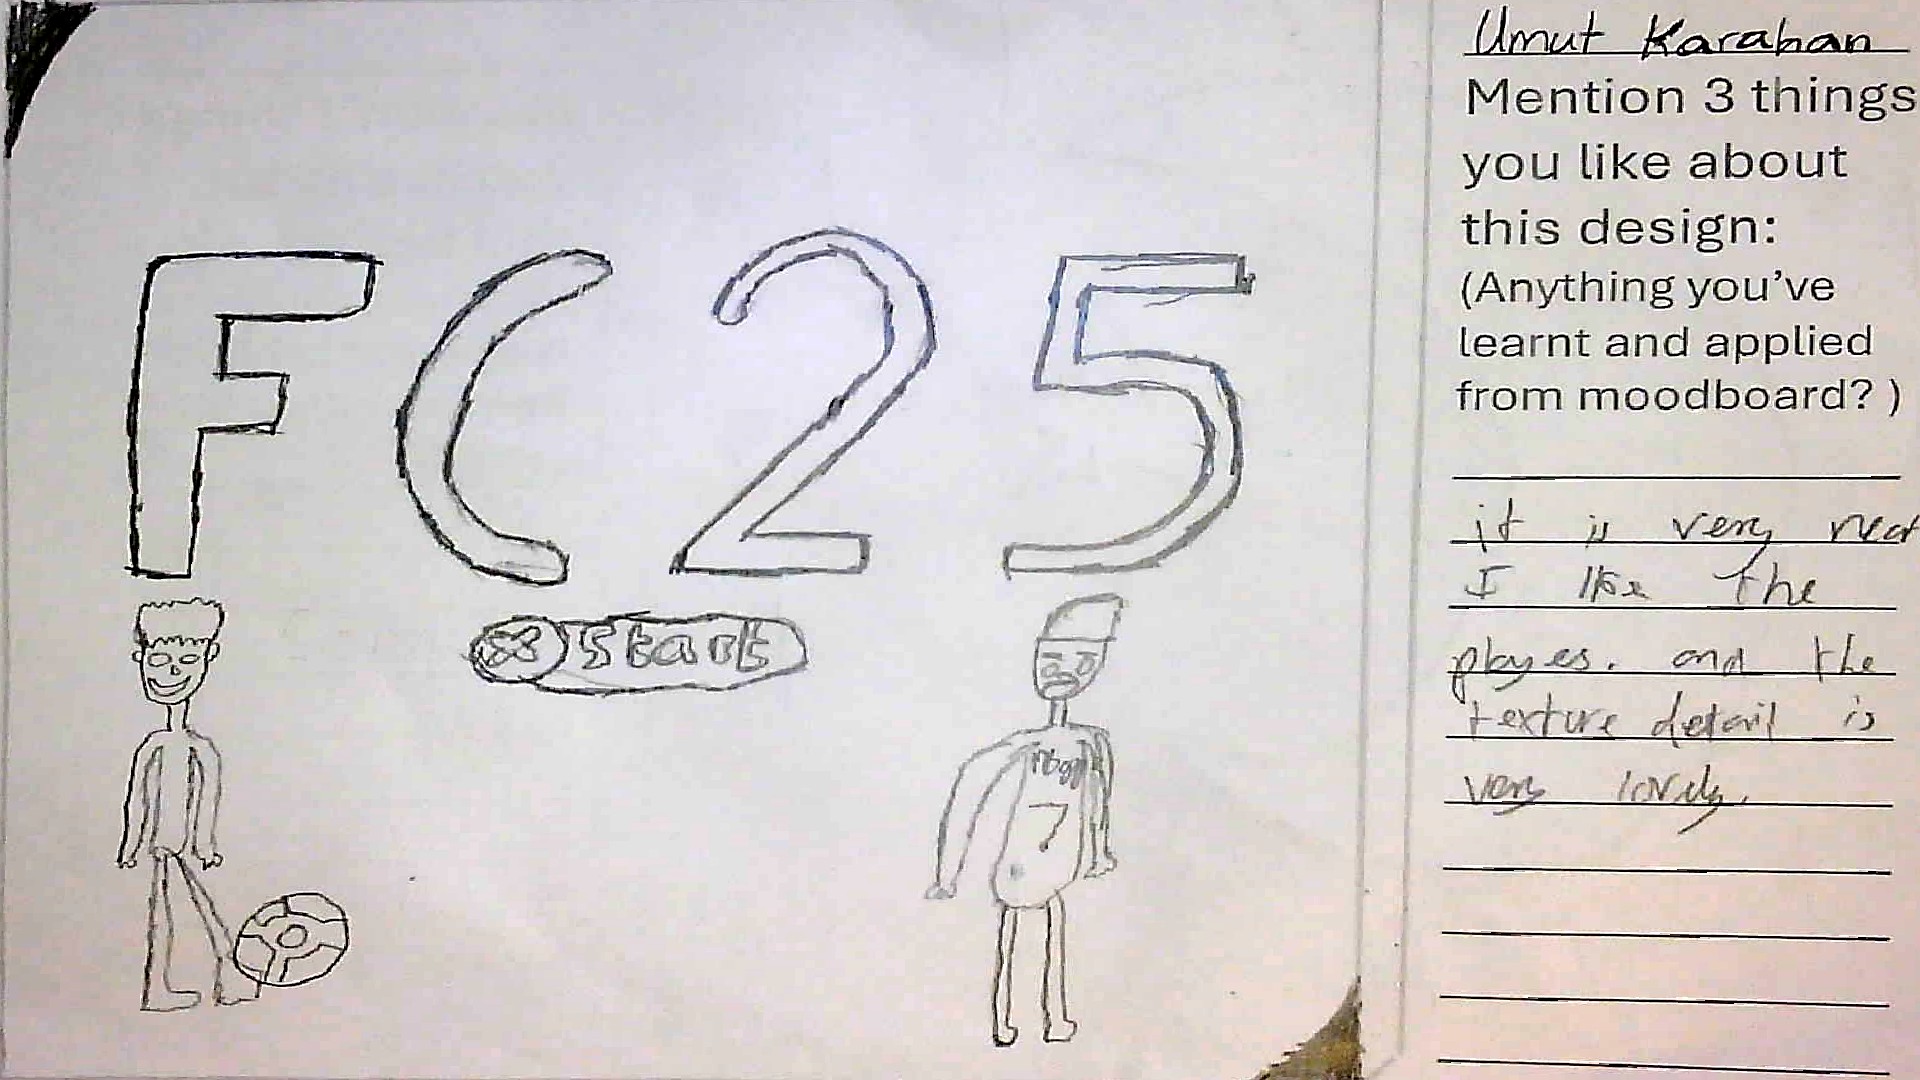 FC25
Start
7
Umut Karahan
Mention 3 things
you like about
this design:
(Anything you've
learnt and applied
from moodboard? )
it is very neat
I like the
playes. and the
texture detail is
very lovely.